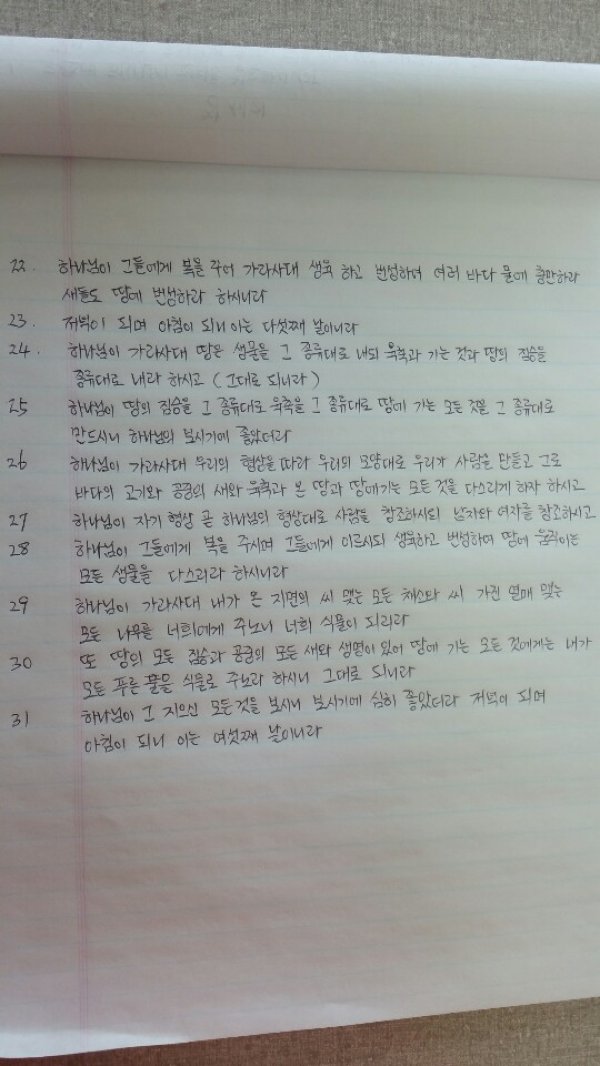 22. 하나님이 그들에게 복을 주어 가라사대 생육 하고 번성하여 여러 바다 물에 충만하라
새들도 땅에 번성하라 하시니라
23. 저녁이 되며 아침이 되니 이는 다섯째 날이니라
24. 하나님이 가라사대 땅은 생물을 그 종류대로 내되 육축과 기는 것과 땅의 짐승을
종류대로 내라 하시고 (그대로 되니라)
25 하나님이 땅의 짐승을 그 종류대로 육축을 그 종류대로 땅에 기는 모든 것을 그 종류대로
만드시니 하나님의 보시기에 좋았더라
26 하나님이 가라사대 우리의 형상을 따라 우리의 모양대로 우리가 사람을 만들고 그로
바다의 고기와 공중의 새와 육축과 온 땅과 땅에 기는 모든 것을 다스리게 하자 하시고
27 하나님이 자기 형상 곧 하나님의 형상대로 사람을 창조하시되 남자와 여자를 창조하시고
28 하나님이 그들에게 복을 주시며 그들에게 이르시되 생육하고 번성하여 땅에 움직이는
모든 생물을 다스리라 하시니라
29 하나님이 가라사대 내가 온 지면의 씨 맺는 모든 채소와 씨 가진 열매 맺는
모든 나무를 너희에게 주노니 너희 식물이 되리라
30 또 땅의 모든 짐승과 공중의 모든 새와 생명이 있어 땅에 기는 모든 것에게는 내가
모든 푸른 풀을 식물로 주노라 하시니 그대로 되니라
31 하나님이 그 지으신 모든 것을 보시니 보시기에 심히 좋았더라 저녁이 되며
아침이 되니 이는 여섯째 날이니라